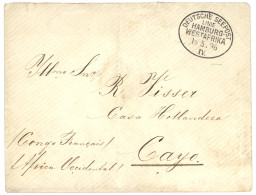 DEUTSCHE SEEPOST
LINIE
HAMBURG-
WESTAFRIKA
5 96
IV
R Visser
Casa Hollandera
(Congo Français)
Cayo.
(Africa Occidental)